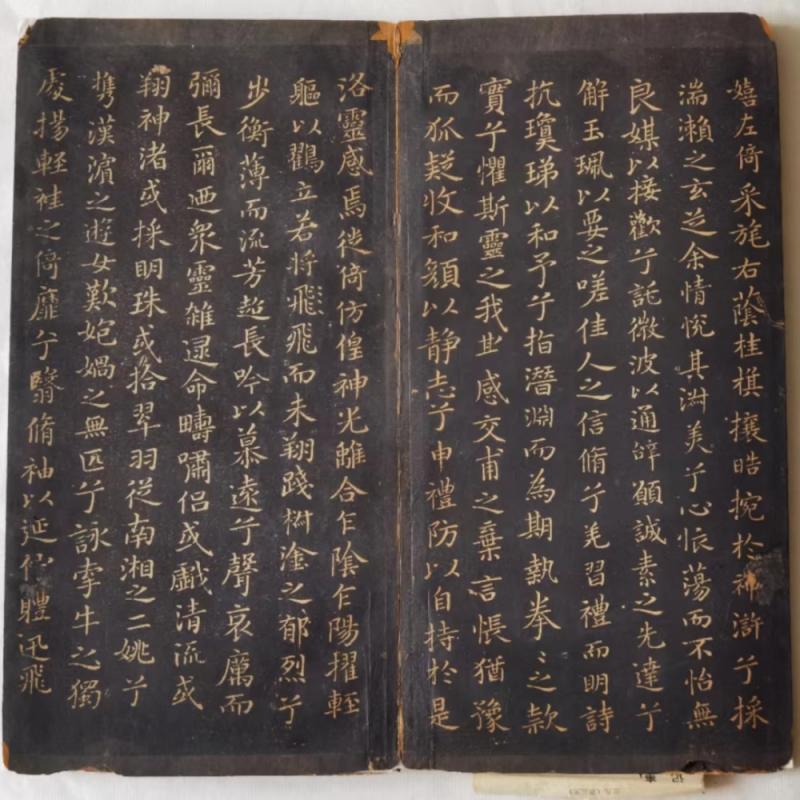 嬉左倚采旄右蔭桂棋攘皓捥於神滸兮採
湍瀨之玄芝余情悅其淑美兮心悵蕩而不怡無
良媒以接歡兮託微波以通辭願誠素之先達兮
解玉珮以要之嗟佳人之信脩兮羌習禮而明詩
抗瓊珶以和予兮指潛淵而為期執拳〻之款
實兮懼斯靈之我欺感交甫之棄言悵猶豫
而狐疑收和顏以靜志兮申禮防以自持於是
洛靈感焉徙倚仿偟神光離合乍陰乍陽擢輕
軀以鸖立若將飛飛而未翔踐椒塗之郁烈兮
步衡薄而流芳超長吟以慕遠兮聲哀厲而
彌長爾迺眾靈雜遝命疇嘯侶或戲清流或
翔神渚或採明珠或拾翠羽從南湘之二姚兮
攜漢濱之遊女歎匏媧之無匹兮詠牽牛之獨
處揚輕袿之倚靡兮翳脩袖以延佇體迅飛